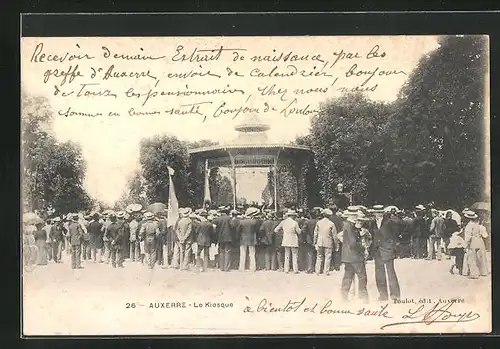 Recevoir Demain Extrait de naissance par les
greffe d'Auxerre, envoie de calendrier, bonjour
de tous les pensionnaires. Chez nous nous
sommes en bonne santé, bonjour de Toulon
26 - AUXERRE - Le Kiosque
Toulot, édit., Auxerre
à bientôt et bonne santé